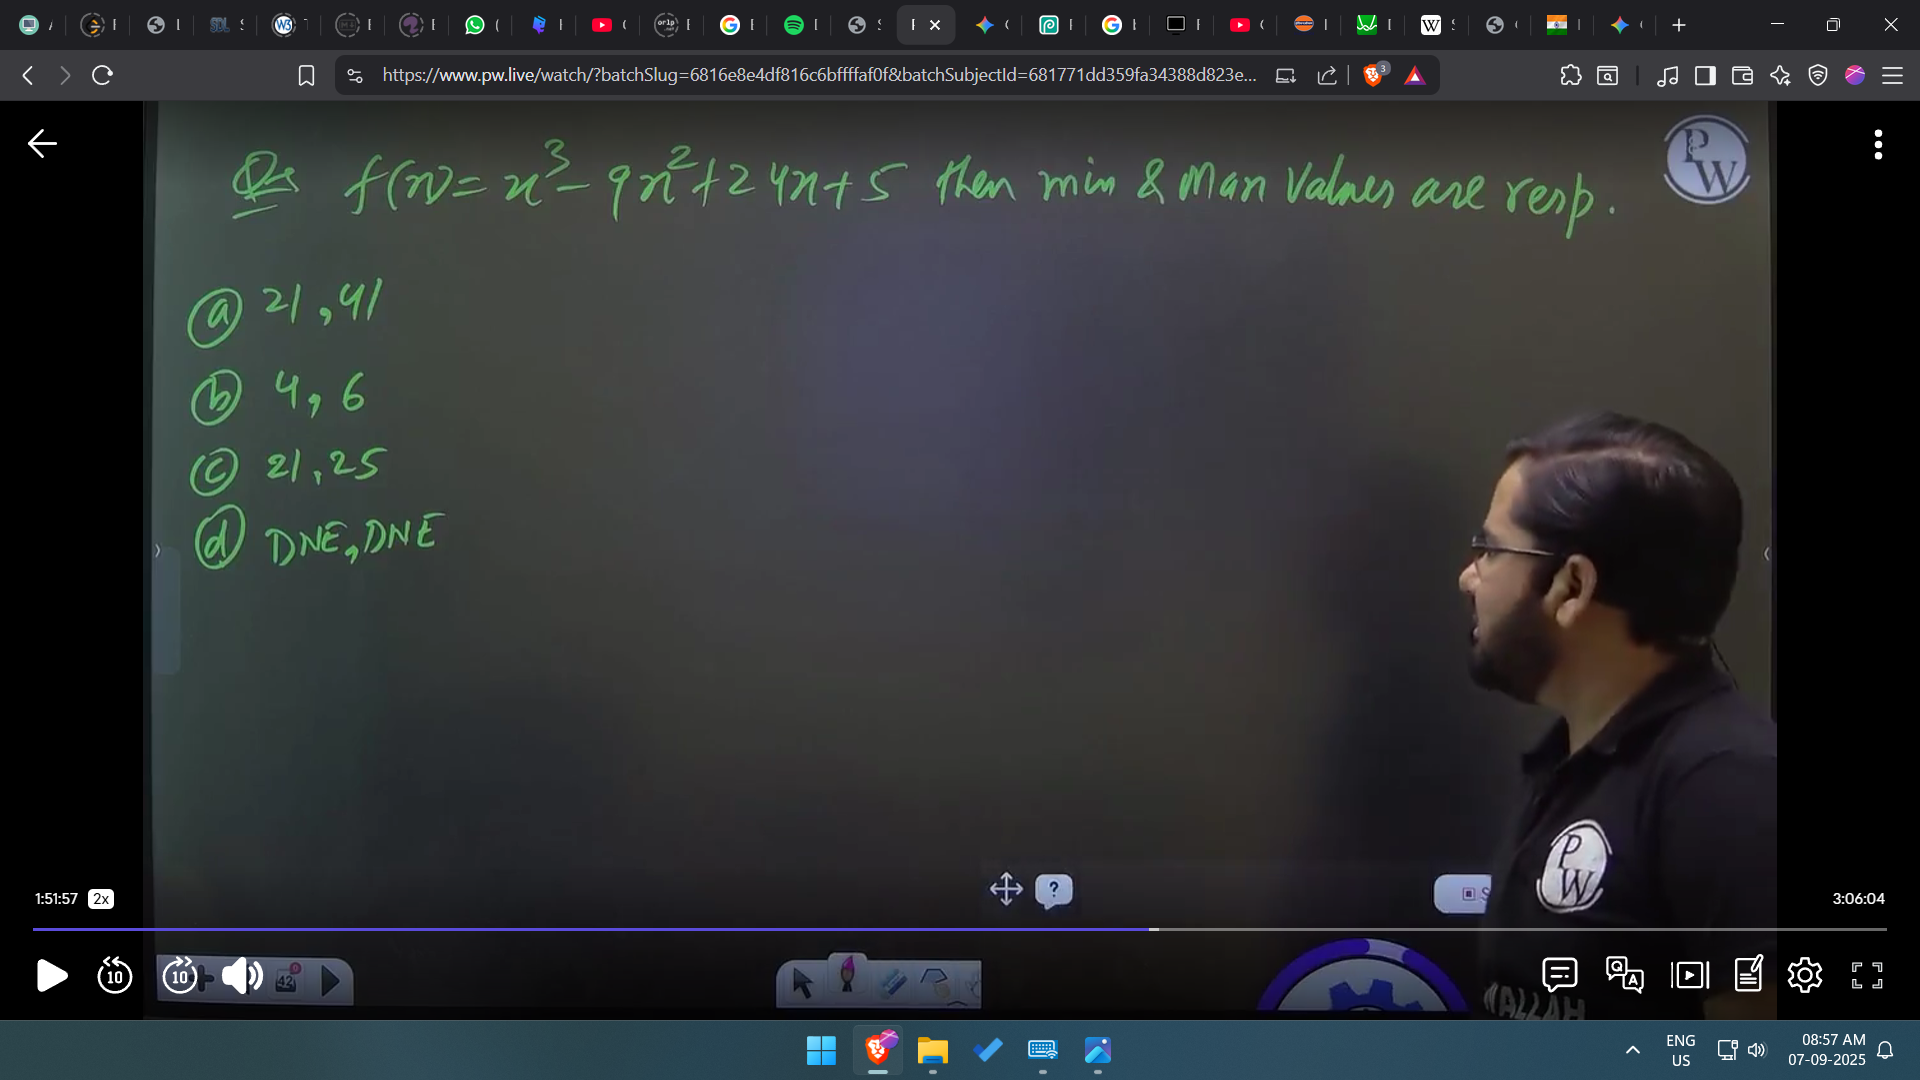 https://www.pw.live/watch/?batchSlug=6816e8e4df816c6bffffaf0f&batchSubjectId=681771dd359fa34388d823e...
3
Qs f(x) = x³ - 9x² + 24x + 5 then min & Max Values are resp.
PW
(a) 21, 41
(b) 4, 6
(c) 21, 25
(d) DNE, DNE
PW
?
1:51:57 2x
3:06:04
10
10
42
WALLAH
ENG
US
08:57 AM
07-09-2025